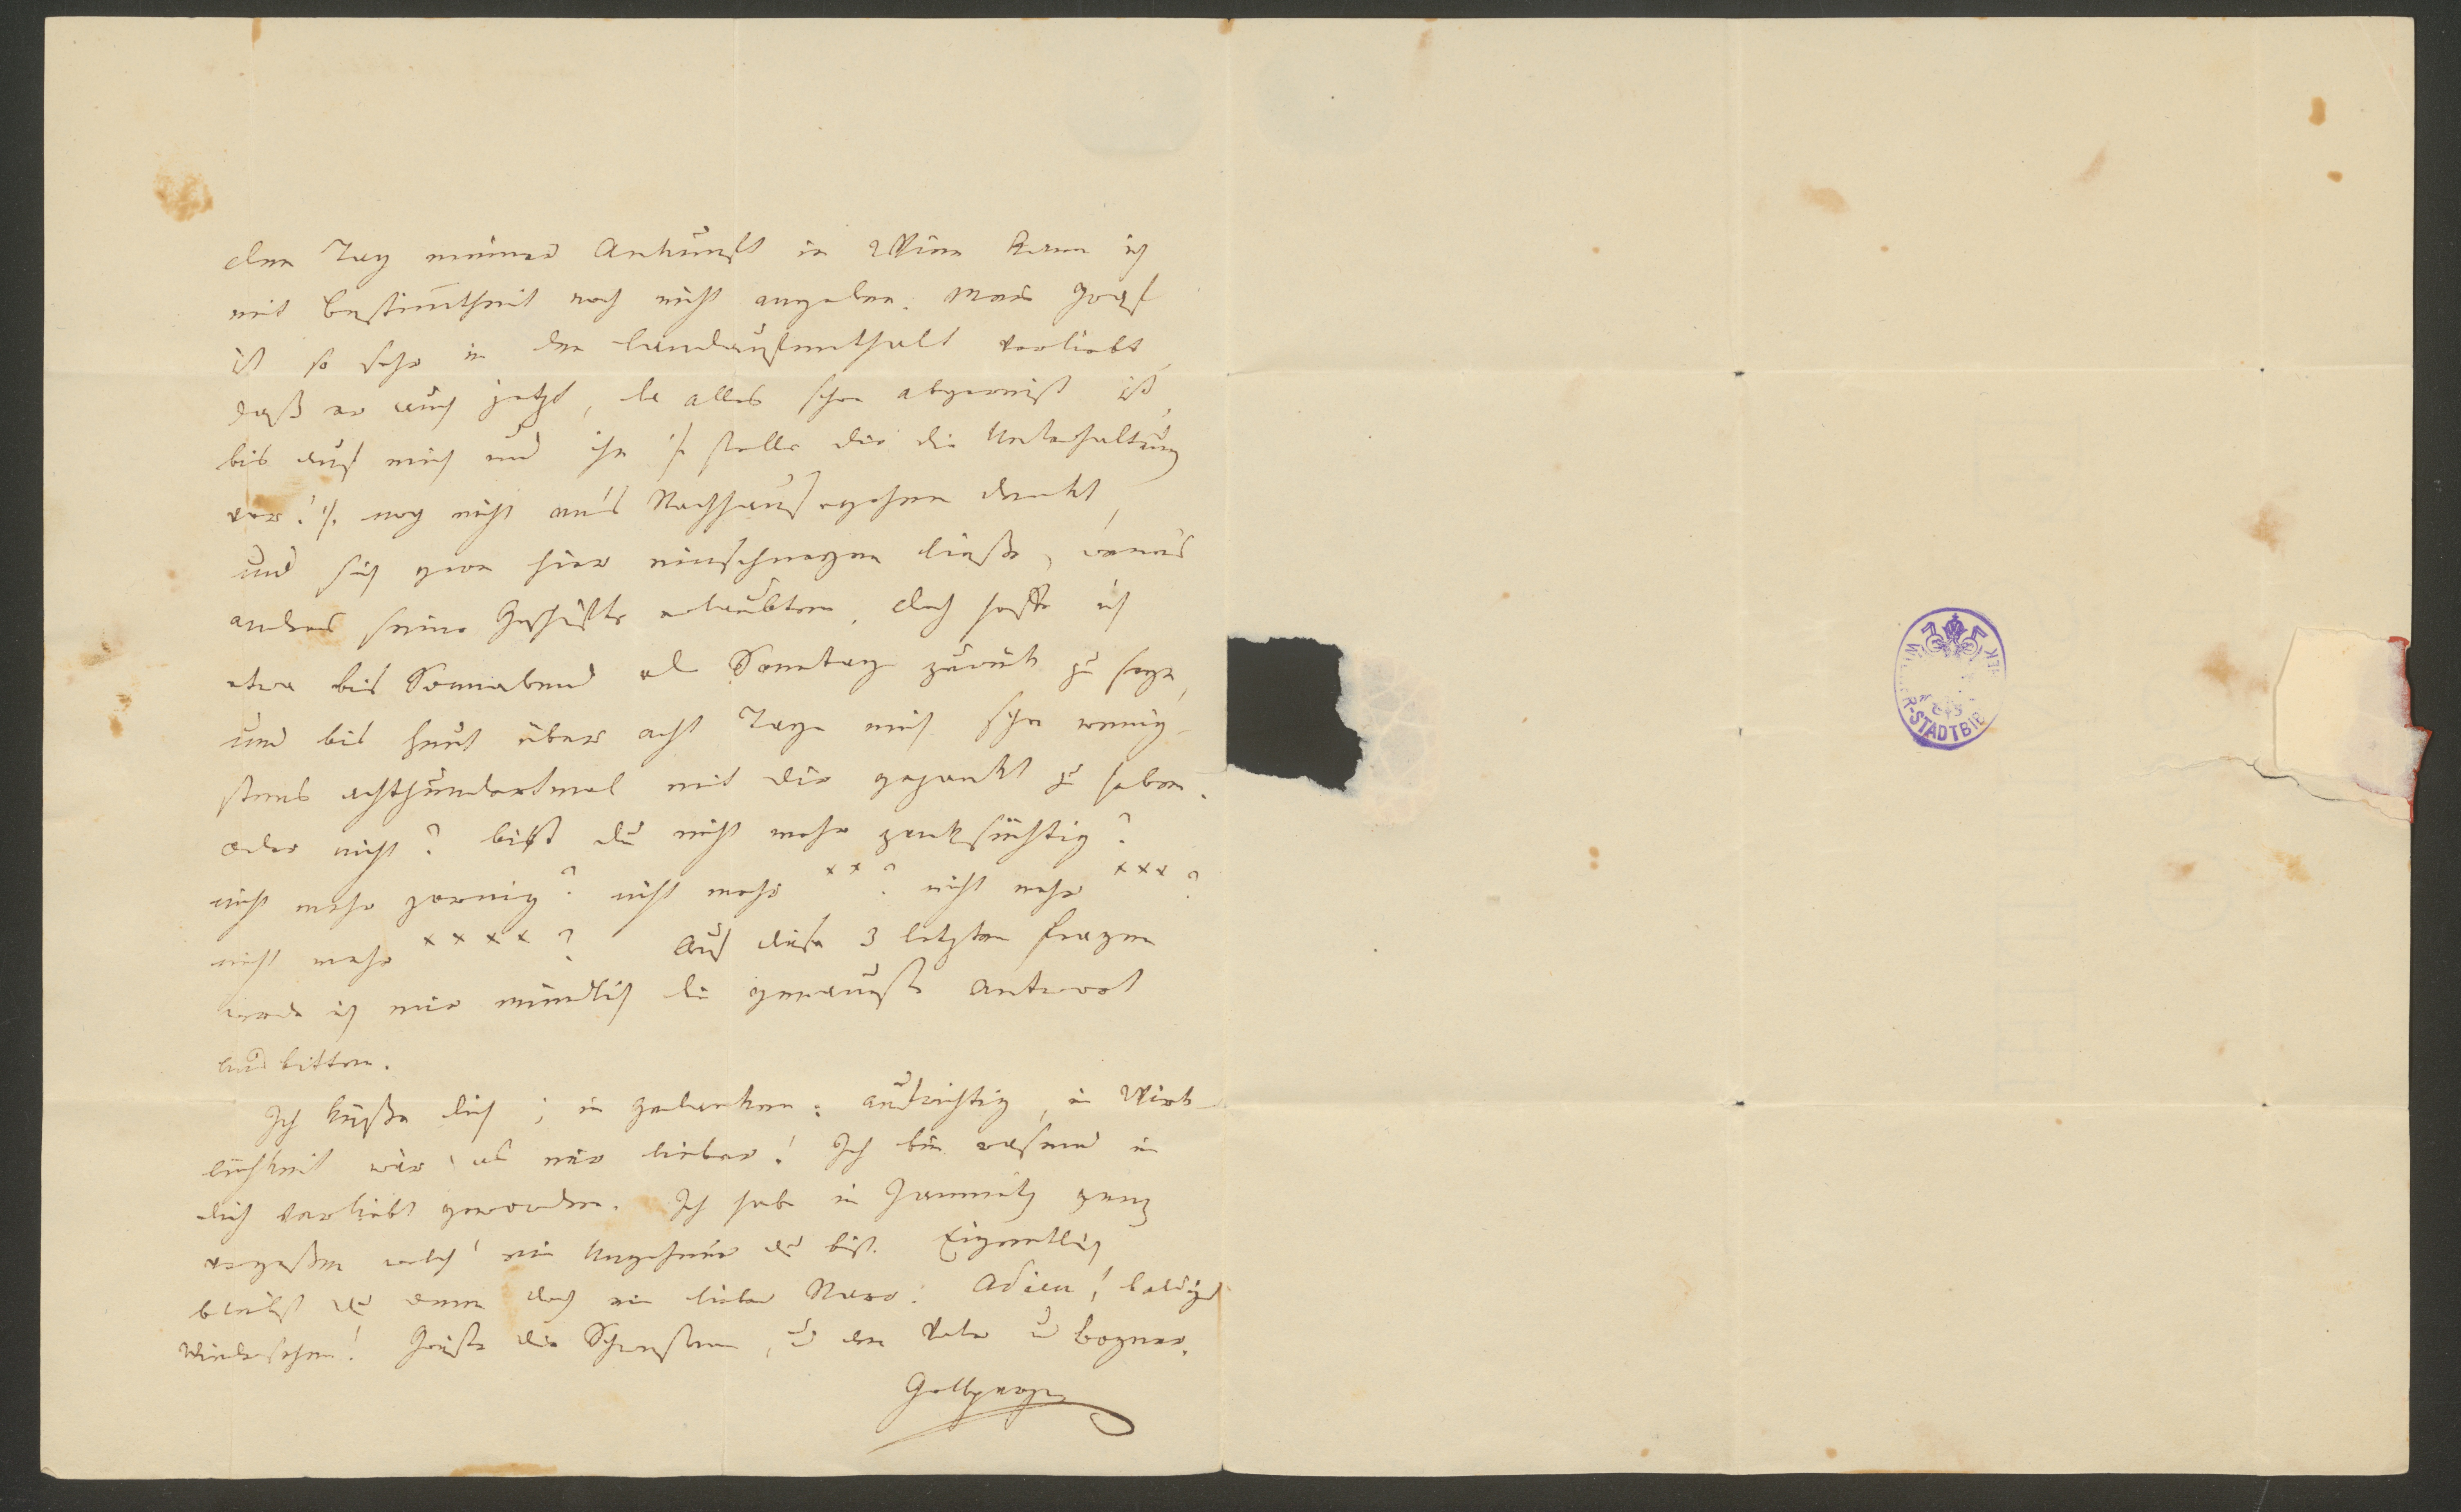 den Tag meiner Ankunft in Wien kann ich
mit Bestimtheit noch nicht angeben. Mein Graf
ist so sehr in den Landaufenthalt verliebt,
daß er auch jetzt, da alles schon abgereist ist,
bis auf mich und ihn /: stelle dir die Unterhaltung
vor! :/ noch nicht an's Nachhausegehen denkt,
und sich gern hier einschneyen ließe, wenn's
anders seine Geschäfte erlaubten. Doch hoffe ich
etwa bis Sonnabend od Sonntag zurück zu seyn,
und bis heut über acht Tage mich schon wenig-
stens achthundertmal mit dir gezankt zu haben.
Oder nicht? bist du nicht mehr zanksüchtig?
nicht mehr zornig? nicht mehr xx? nicht mehr xxx?
nicht mehr xxxx? Auf diese 3 letzten Fragen
werde ich mir mündlich die genauste Antwort
ausbitten.
Ich küße dich; in Gedanken: aufrichtig, in Wirk-
lichkeit wär' es mir lieber! Ich bin rasend in
dich verliebt geworden. Ich habe in Jamnitz ganz
vergeßen welch' ein Ungeheuer du bist. Eigentlich
bleibst du denn doch ein lieber Narr. Adieu! baldiges
Wiedersehen! Grüße die Schwestern, u den Vater u Bogner.
Grillparzer
WIENER-STADTBIB